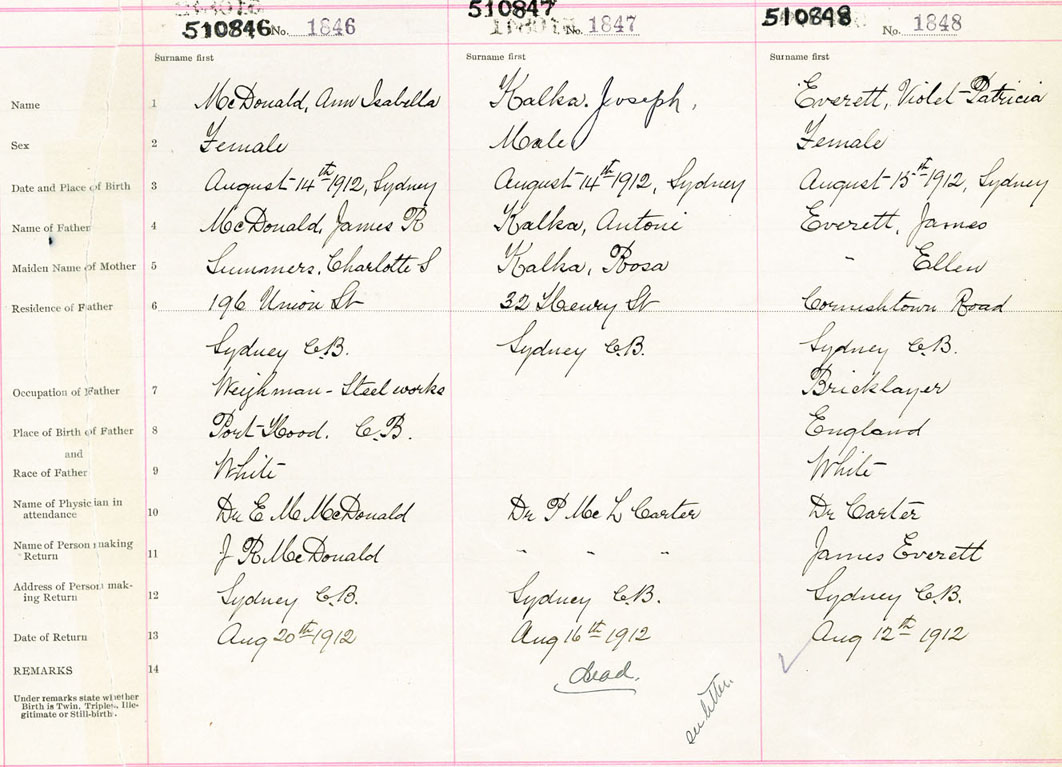 510846 No. 1846 510847 No. 1847 510848 No. 1848
Surname first Surname first Surname first
Name 1 McDonald, Ann Isabella Kalka. Joseph, Everett, Violet Patricia
Sex 2 Female Male Female
Date and Place of Birth 3 August 14th 1912, Sydney August 14th 1912, Sydney August 15th 1912, Sydney
Name of Father 4 McDonald, James R Kalka, Antoni Everett, James
Maiden Name of Mother 5 Summers, Charlotte S Kalka, Rosa " Ellen
Residence of Father 6 196 Union St 32 Henry St Cornishtown Road
Sydney C.B. Sydney C.B. Sydney C.B.
Occupation of Father 7 Weighman - Steel works Bricklayer
Place of Birth of Father 8 Port Hood. C.B. England
and
Race of Father 9 White White
Name of Physician in
attendance 10 Dr E M McDonald Dr P Mc L Carter Dr Carter
Name of Person making
Return 11 J R McDonald " " " James Everett
Address of Person mak-
ing Return 12 Sydney C.B. Sydney C.B. Sydney C.B.
Date of Return 13 Aug 20th 1912 Aug 16th 1912 Aug 12th 1912
REMARKS 14 dead.
see letter.
Under remarks state whether
Birth is Twin, Triplet, Ille-
gitimate or Still-birth.